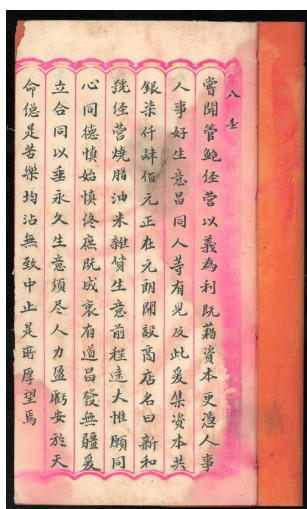 八壹
嘗聞管鮑经营以義為利既藉資本更憑人事
人事好生意昌同人等有見及此爰集資本共
銀柒仟肆佰元正在元朗開設商店名曰新和
號经营燒腊油米雜貨生意前程遠大惟願同
心同德慎始慎终庶既成裘有道昌發無疆爰
立合同以垂永久生意須尽人力盈虧安於天
命总是苦樂均沾無致中止是所厚望焉